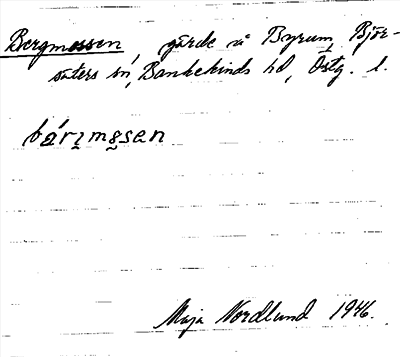 Bergmossen, gärde å Byrum, Björ-
säters sn, Bankekinds hd, Östg. l.
bárzmo̥sen
Maja Nordlund 1946.